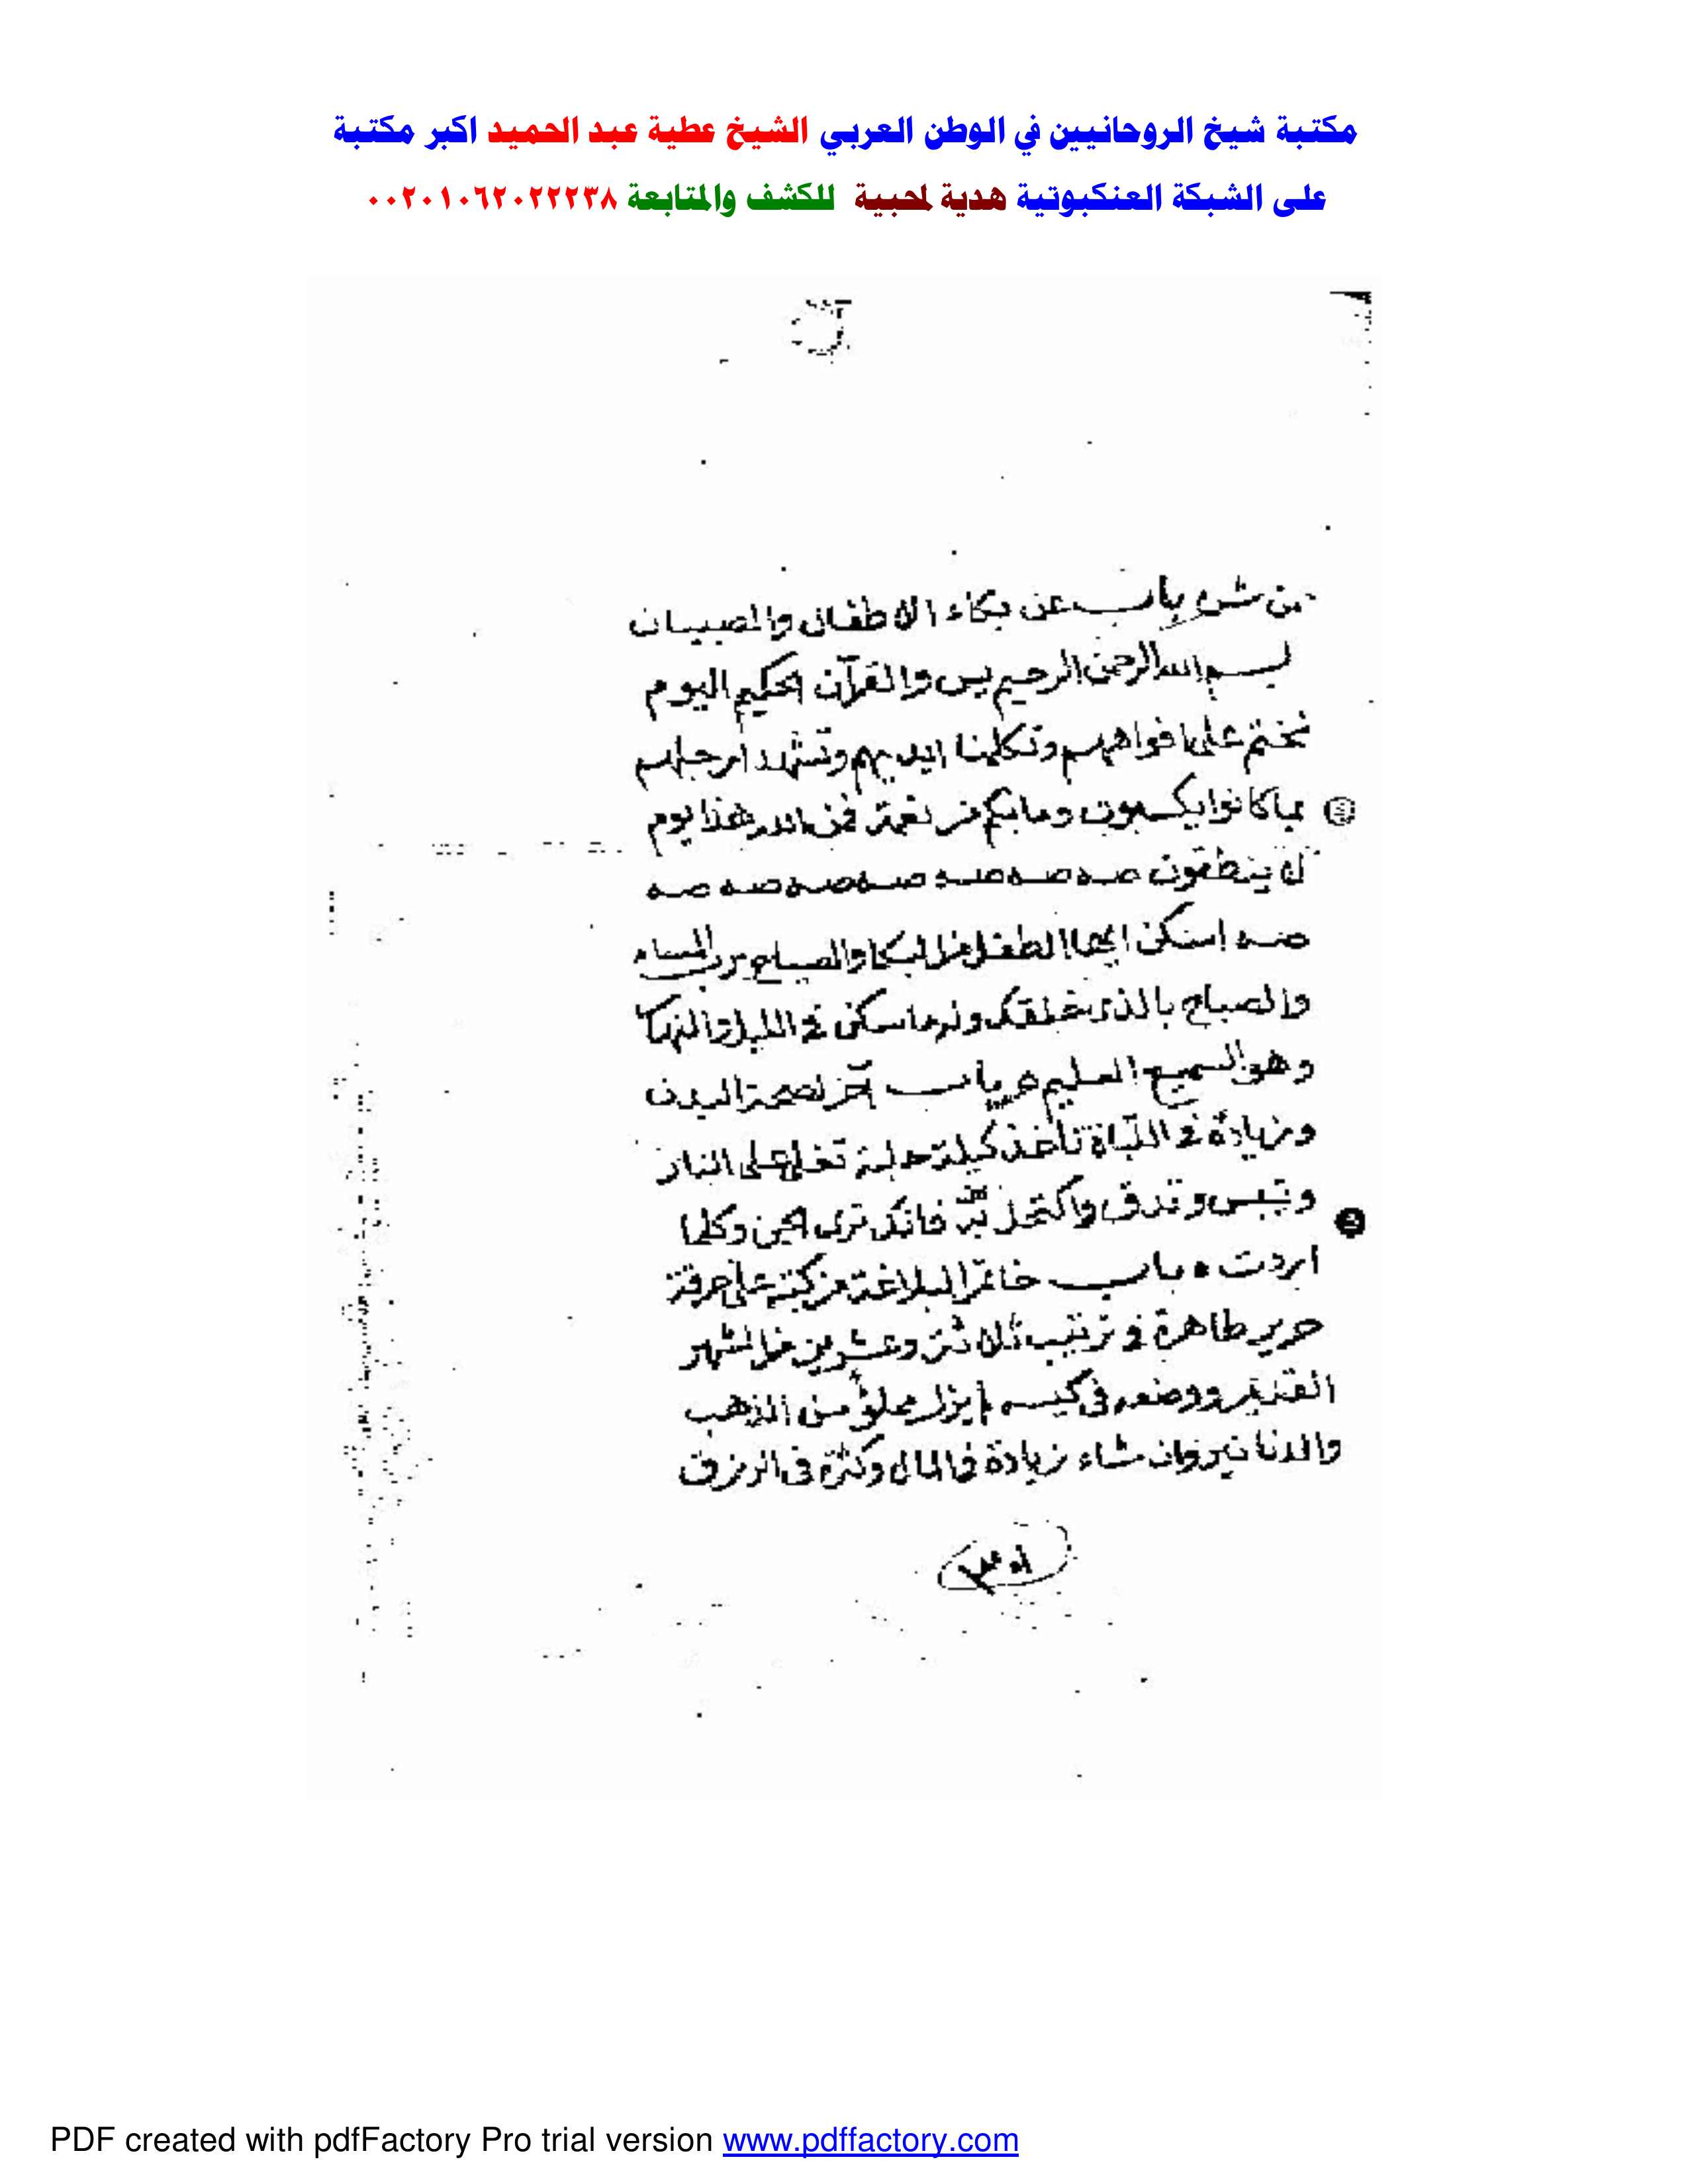 مكتبة شيخ الروحانيين في الوطن العربي الشيخ عطية عبد الحميد اكبر مكتبة
على الشبكة العنكبوتية هدية لمحبية للكشف والمتابعة ٠٠٢٠١٠٦٢٠٢٢٢٣٨
من شره باب عن بكاء الاطفال والصبيان
بسم الله الرحمن الرحيم يس والقرآن الحكيم اليوم
نختم على افواههم وتكلمنا ايديهم وتشهد ارجلهم
بما كانوا يكسبون وما بكم من نعمة فمن الله هذا يوم
لا ينطقون صه صه صه صه صه صه صه
صه اسكن ايها الطفل من البكا والصياح من المساء
والصباح بالذى خلقك وله ما سكن فى الليل والنهار
وهو السميع العليم باب آخر لصحة البدن
وزيادة فى تأخذ كيلة حلبة تغلى على النار
وتيبس وتدق واكتحل فانك ترى الجن وكلما
اردت ه باب خاتم البلاغة من كتبه على خرقة
حرير طاهرة فى ثلاثة وعشرين من الشهر
ووضعه فى كيسه لم يزل مملؤ من الذهب
والدنانير وان شاء زيادة فى المال وكثرة فى الرزق
PDF created with pdfFactory Pro trial version www.pdffactory.com